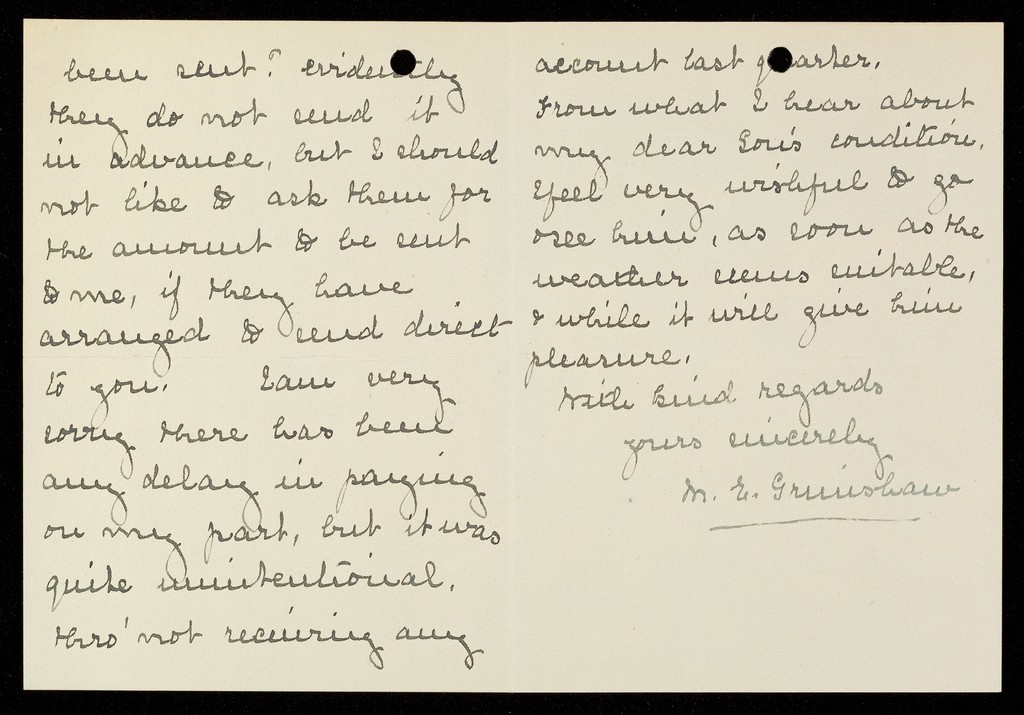 been sent? evidently
they do not send it
in advance, but I should
not like to ask them for
the amount to be sent
to me, if they have
arranged to send direct
to you. I am very
sorry there has been
any delay in paying
on my part, but it was
quite unintentional,
thro' not receiving any
account last quarter.
From what I hear about
my dear Son's condition,
I feel very wishful to go
& see him, as soon as the
weather seems suitable,
& while it will give him
pleasure.
With kind regards
yours sincerely
M. E. Grimshaw